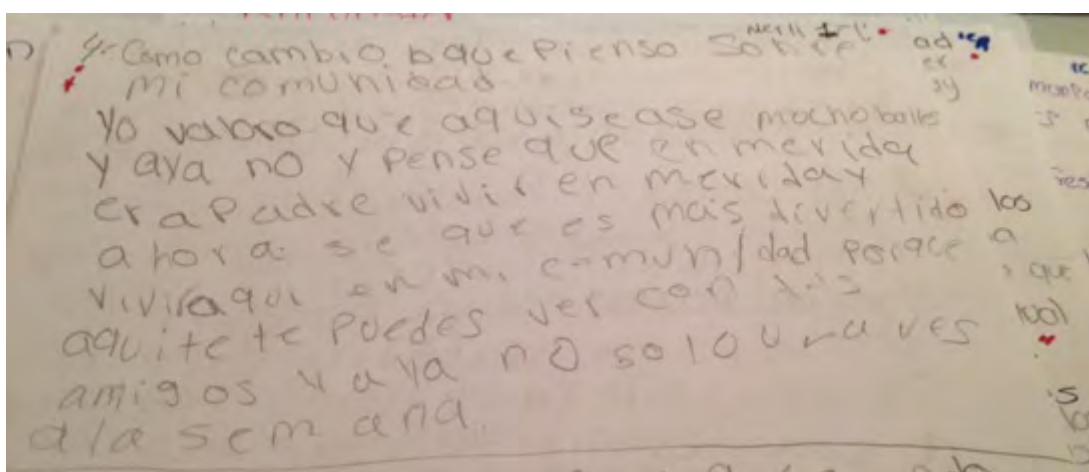 4- Como cambio o que Pienso Sobre
mi comunidad
Yo valoro que aquisease mocho baile
y aya no y pense que en merida
era Padre vivir en merida y
ahora se que es mais divertido
viviraqui en mi comunidad porqce
aquitete puedes ver con tus
amigos y aya no solo una ves
a la semana.
ad
er
sy
los
a
que